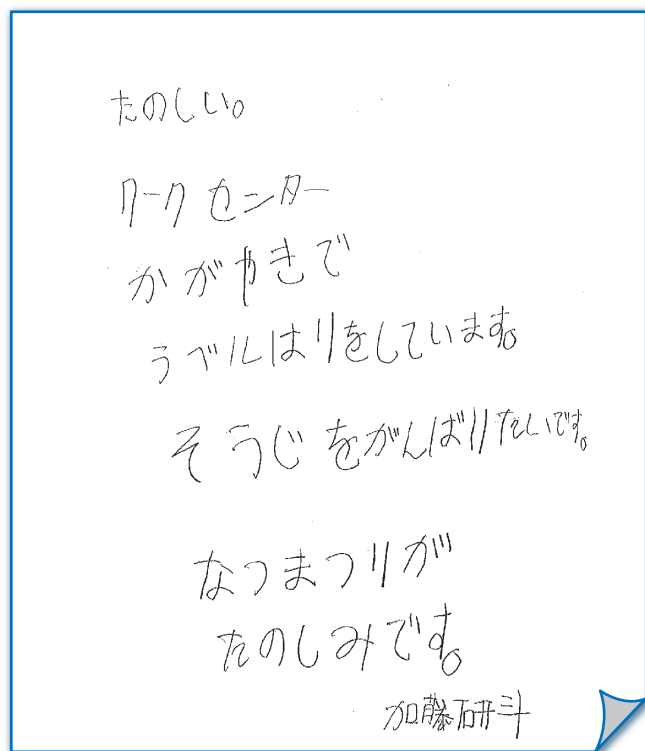 たのしい。
ワークセンター
かがやきで
ラベルはりをしています。
そうじをがんばりたいです。
なつまつりが
たのしみです。
加藤研斗